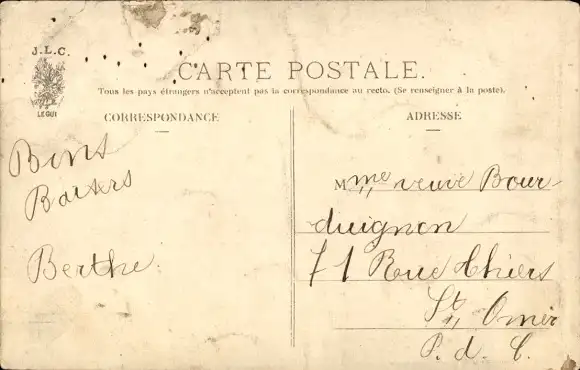 J.L.C.
LE GUI
CARTE POSTALE.
Tous les pays étrangers n'acceptent pas la correspondance au recto. (Se renseigner à la poste).
CORRESPONDANCE
Bons
Baisers
Berthe
ADRESSE
Mme veuve Bour
duignon
71 Rue Thiers
St Omer
P. d. C.